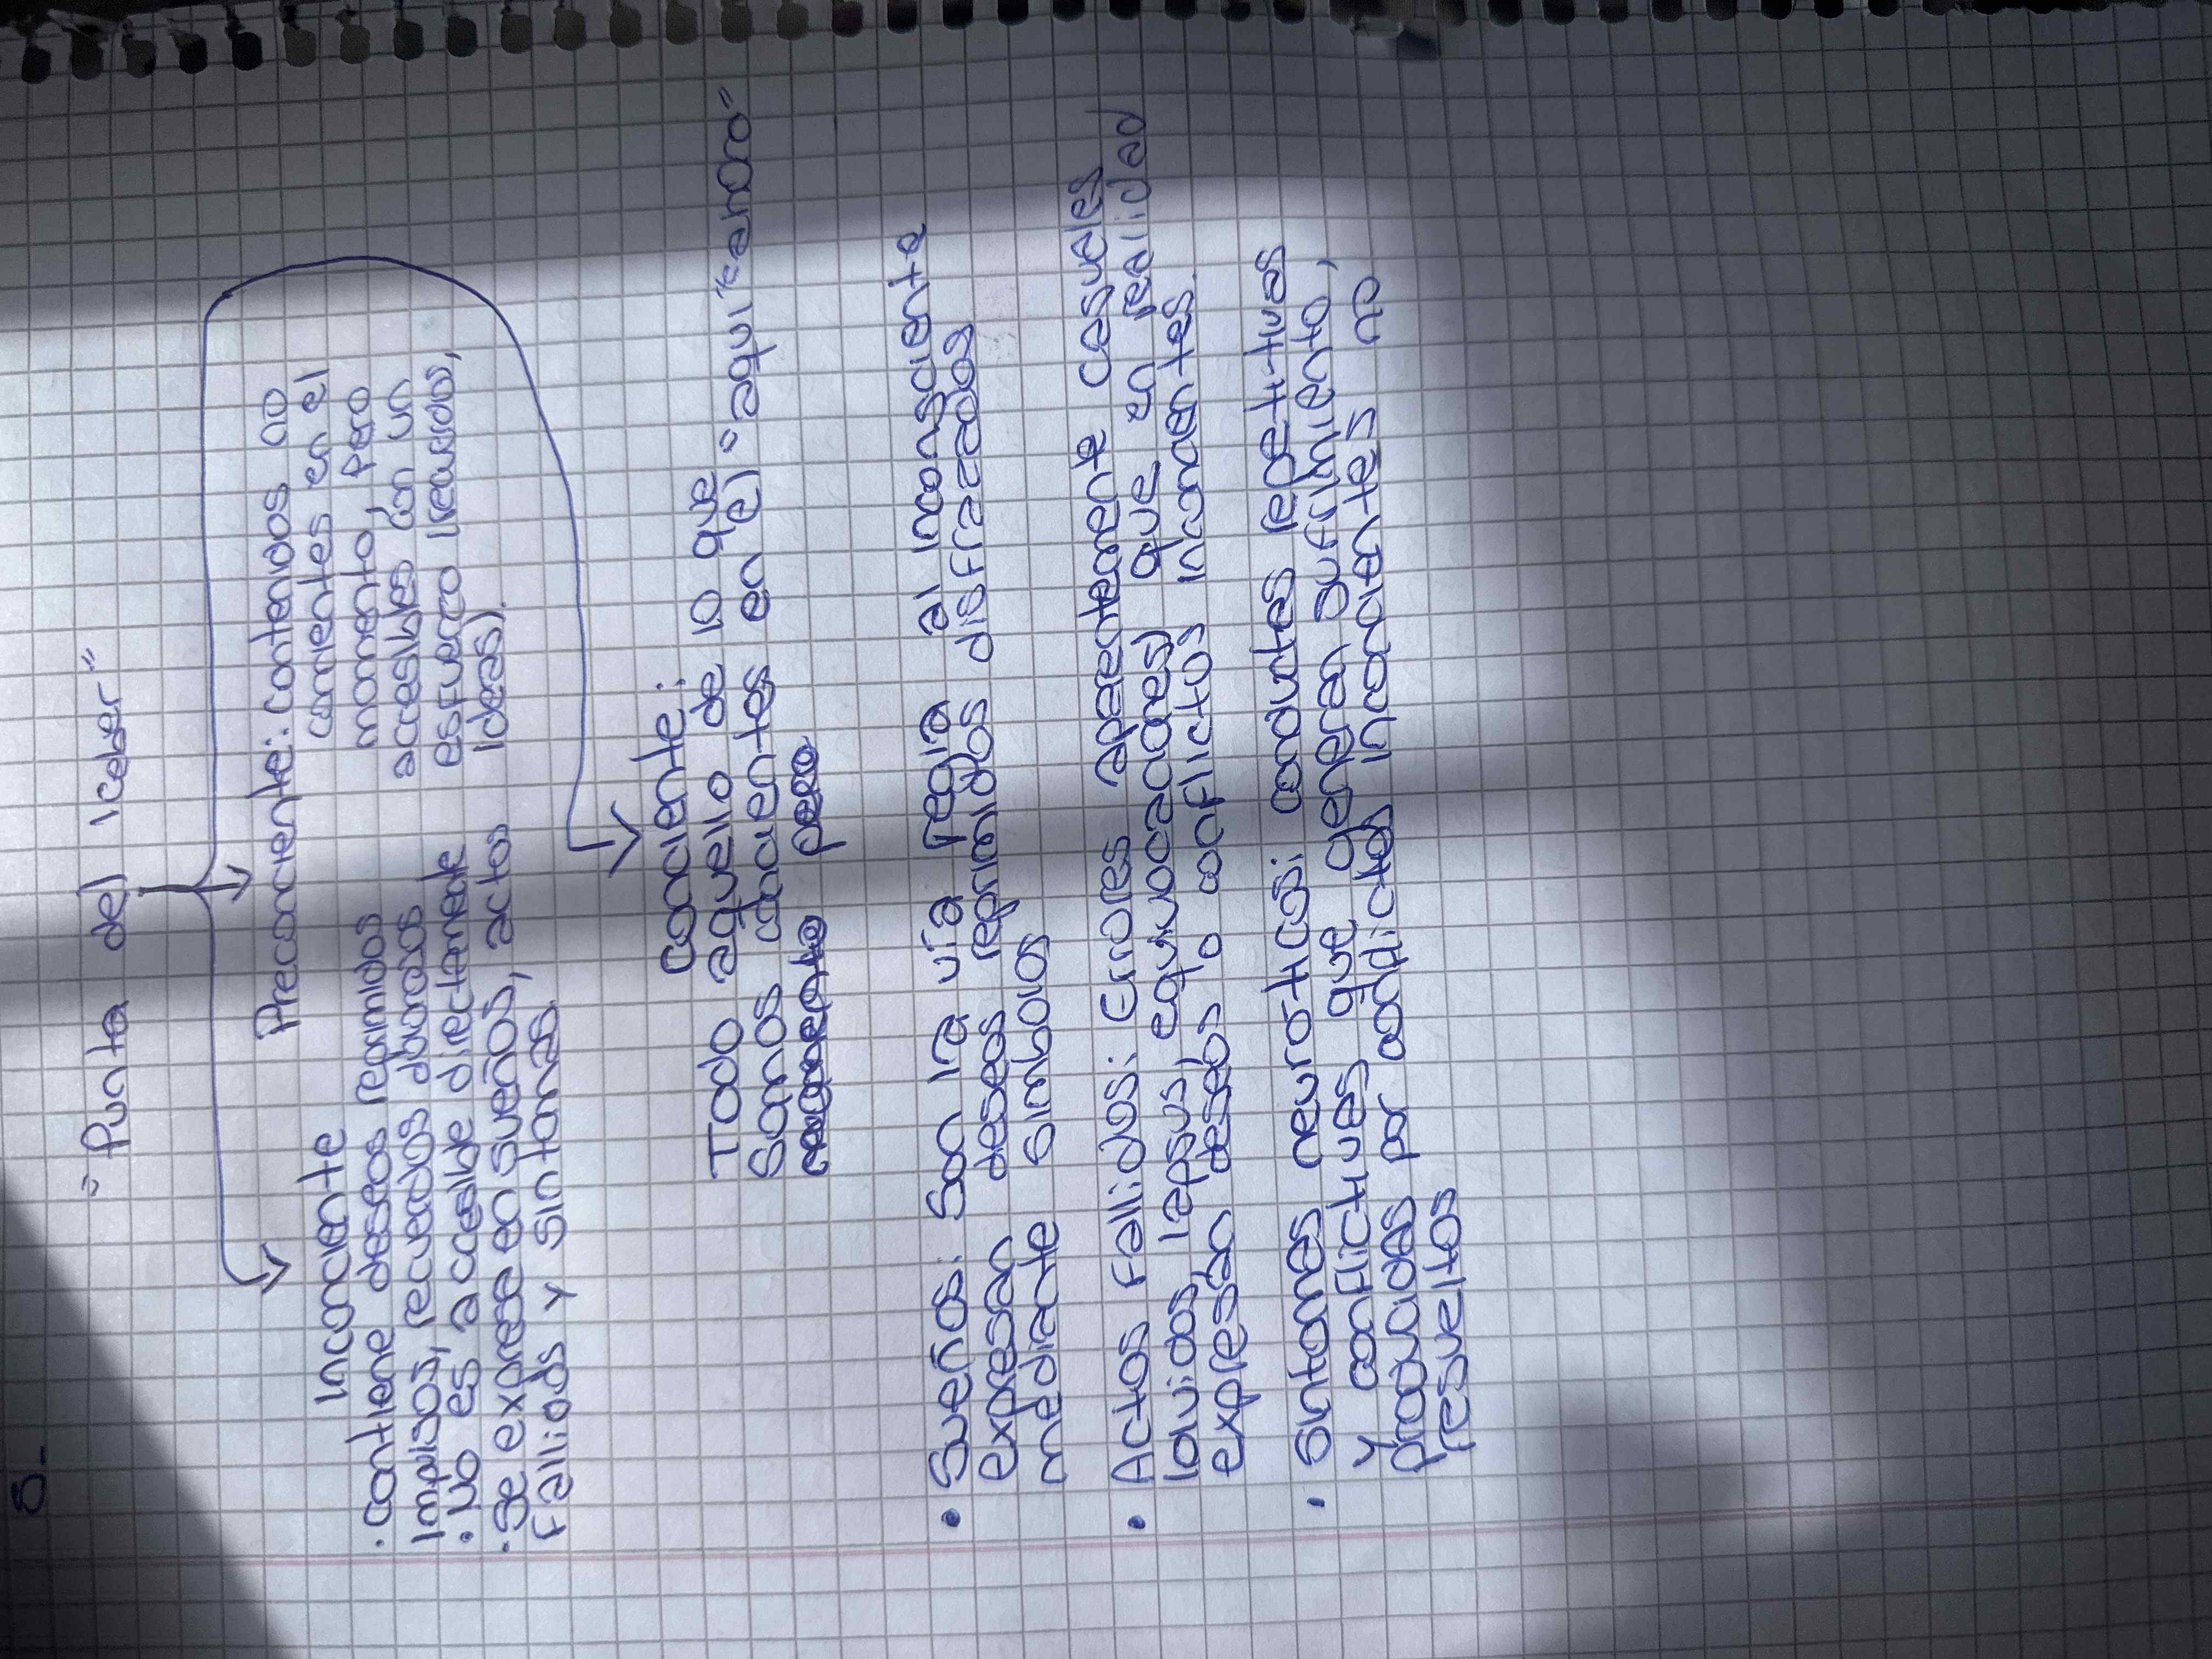 8-
"Punta del Iceber"
Preconciente: contenidos no
concientes en el
momento, pero
accesibles con un
esfuerzo (recuerdos,
ideas).
Inconciente
• contiene deseos reprimidos
impulsos, recuerdos
• No es accesible directamente
• Se exprese en sueños, actos
Falliods y sintomas.
Conciente:
Todo aquello de lo que
Somos concientes en el "aqui" "ahora"
• Sueños: Son la vía regia al inconsciente
expresan deseos reprimidos disfrazados
mediante simbolos
• Actos Fallidos: Errores aparentemente casuales
(olvidos, lapsus, equivocaciones) que en realidad
expresan deseos o conflictos inconcientes.
• Sintomas neuroticos: conductas repetitivas
y conflictivas que generan sufrimiento,
producidas por conflictos inconcientes no
resueltos